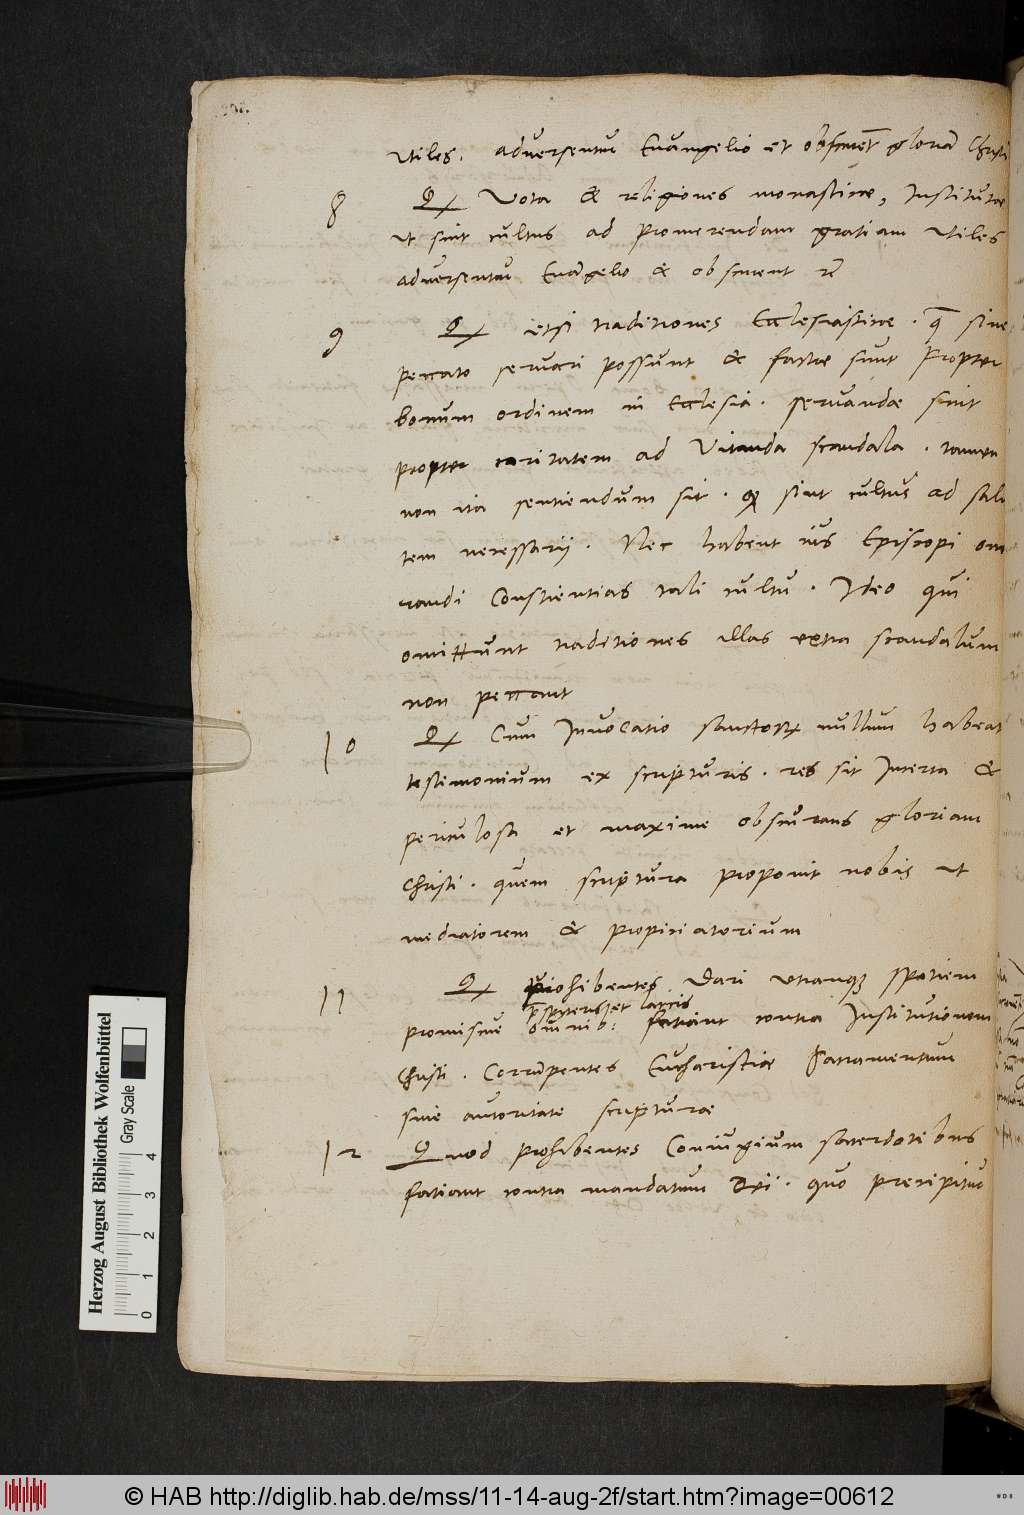 utiles. adversentur Euangelio et obscurēt gloriā Christi
8 Q Vota & religiones monasticae, Institutae
ut sint cultus ad promerendam gratiam utiles
adversentur Euāgelio & obscurent
9 Q etsi traditiones Ecclesiasticae. q̄ sine
peccato servari possunt & factae sunt Propter
bonum ordinem in Ecclesia. servandae sint
propter caritatem ad Vitanda scandala. tamen
non ita sentiendum sit. sint cultus ad salu
tem necessarij. Nec habent ius Episcopi one
randi Conscientias tali cultu. Ideo qui
omittunt traditiones illas extra scandalum
non peccant
10 Q Cum Invocatio sanctorum nullum habeat
testimonium ex scripturis. res sit Incerta &
periculosa et maxime obscurans gloriam
Christi. quem scriptura proponit nobis ut
mediatorem & propiciatorium
11 Q prohibentes Dari utramque speciem
presbiteris et laicis
promiscue omnib: faciant contra Institutionem
Christi. Corrūpentes Eucharistiae Sacramentum
sine autoritate scripturae
12 Quod prohibentes Coniugium sacerdotibus
faciant contra mandatum Dei. quo precipitur
Herzog August Bibliothek Wolfenbüttel
Gray Scale
0 1 2 3 4
© HAB http://diglib.hab.de/mss/11-14-aug-2f/start.htm?image=00612